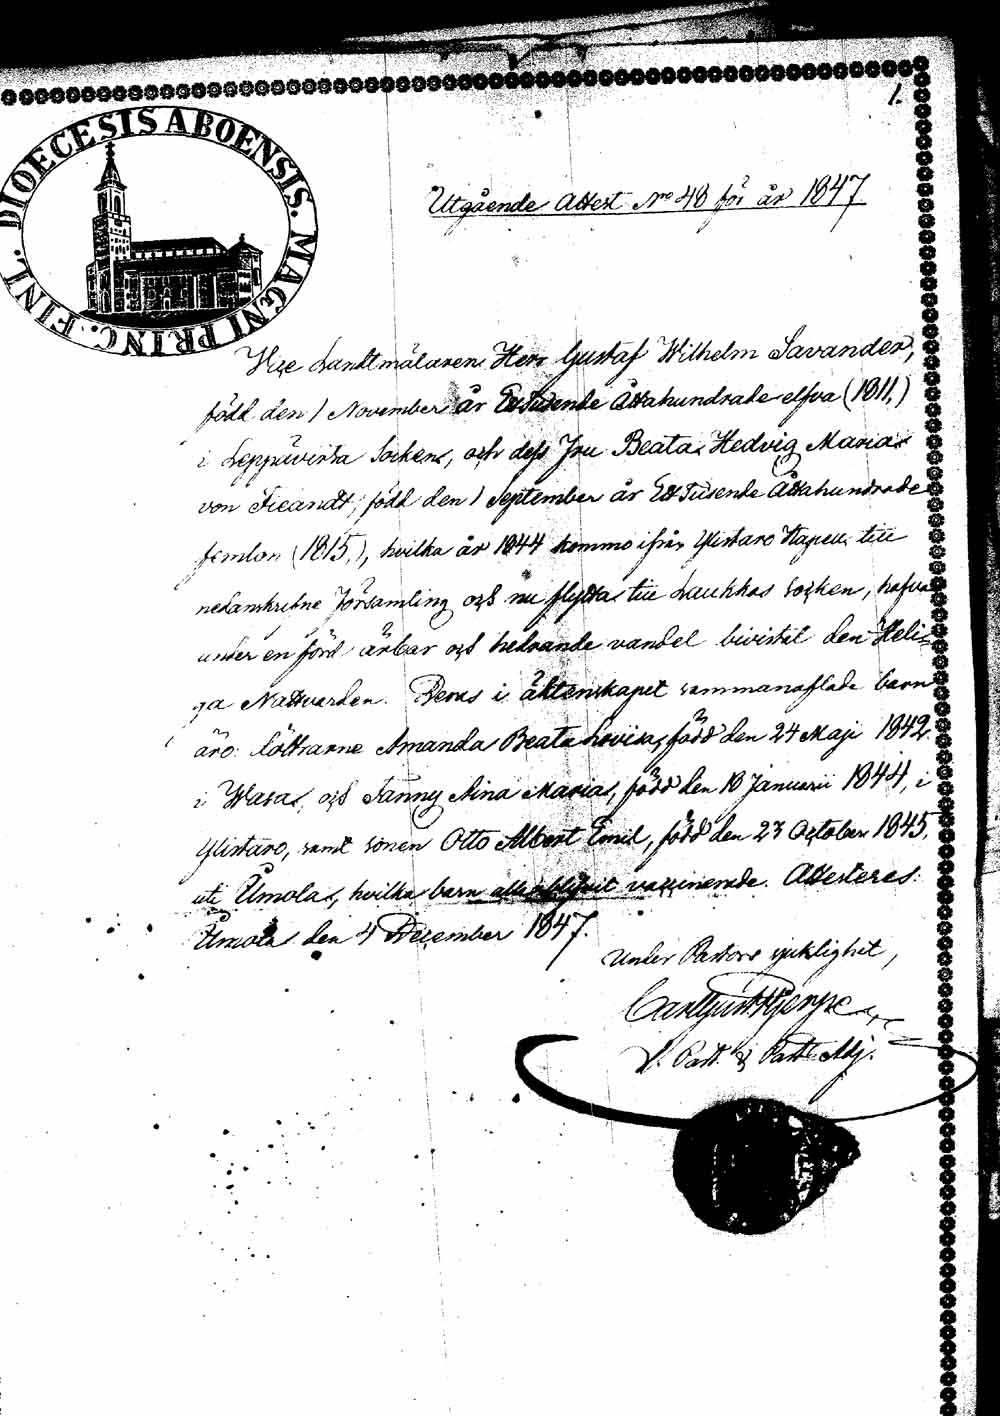 1.
DIOECESIS ABOENSIS. MAGNI PRINC. FINL.
Utgående Attest No 48 för år 1847
Vice Landtmätaren Herr Gustaf Wilhelm Savander,
född den 1 November år Ett Tusende Åttahundrade elfva (1811.)
i Leppävirta Socken, och dess Fru Beata Hedvig Maria
von Fieandt, född den 1 September år Ett Tusende Åttahundrade
femton (1815.), hvilka år 1844 kommo ifrån Ylistaro Kapell till
nedanskrifne Församling och nu flytta till Laukkas socken, hafva
under en förd ärbar och hedrande vandel bivistat den Heli-
ga Nattvarden. Deras i äktenskapet sammanaflade barn
äro: döttrarne Amanda Beata Lovisa, född den 24 Maji 1842
i Wasa, och Fanny Aina Maria, född den 18 Januarii 1844, i
Ylistaro, samt sonen Otto Albert Emil, född den 23 October 1845.
uti Ilmola, hvilka barn alla blifvit vaccinerade. Attesteres.
Ilmola den 4 December 1847.
Under Pastors sjuklighet,
Carl Gust
V. Past. & Past. Adj.